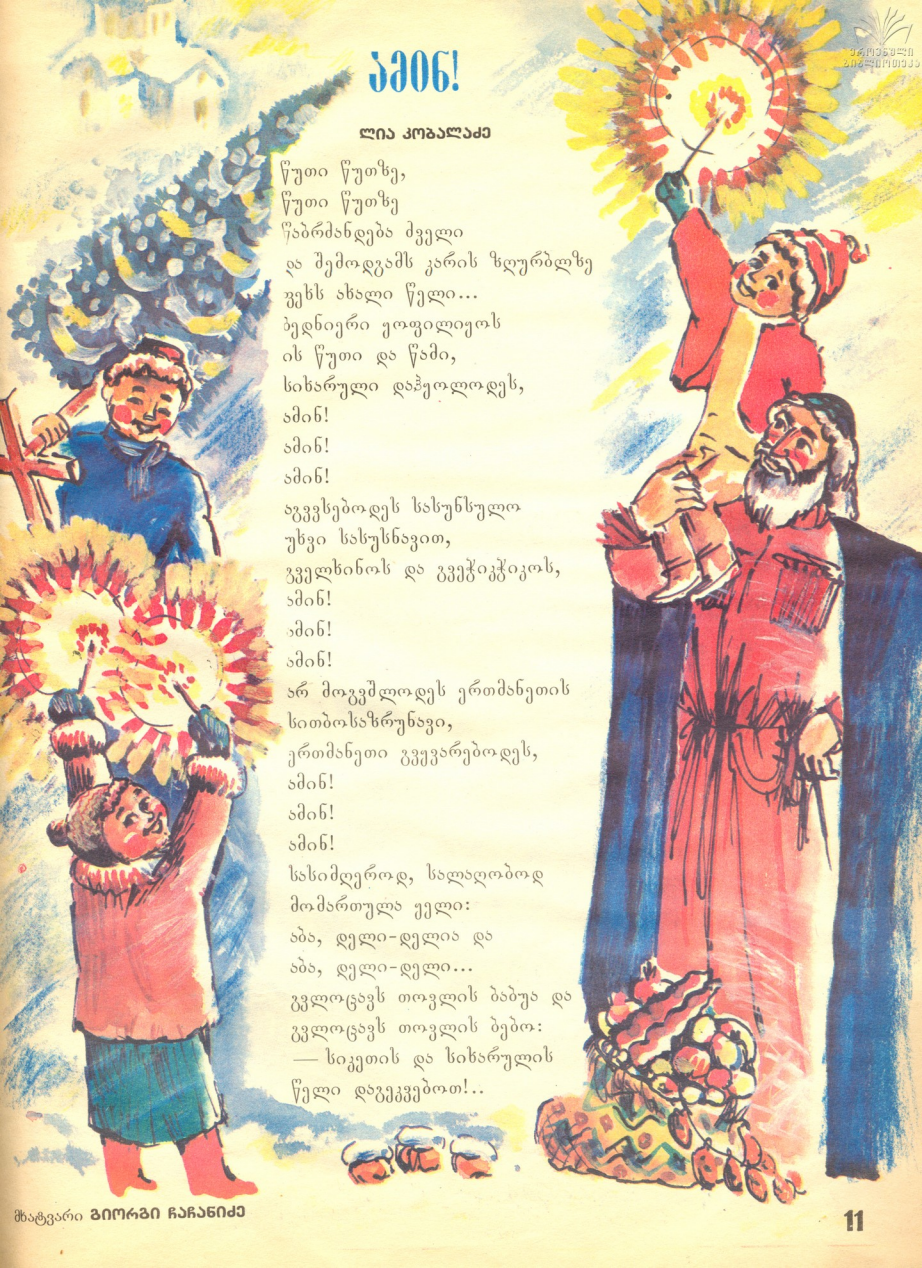 ეროვნული
ბიბლიოთეკა
ამინ!
ლია კობალაძე
წუთი წუთზე,
წუთი წუთზე
წაბრმანდება ძველი
და შემოდგამს კარის ზღურბლზე
ფეხს ახალი წელი...
ბედნიერი ყოფილიყოს
ის წუთი და წამი,
სიხარული დაჰყოლოდეს,
ამინ!
ამინ!
ამინ!
აგვვსებოდეს სასუნსულო
უხვი სასუსნავით,
გველხინოს და გვეჭიკჭიკოს,
ამინ!
ამინ!
ამინ!
არ მოგვშლოდეს ერთმანეთის
სითბოსაზრუნავი,
ერთმანეთი გვყვარებოდეს,
ამინ!
ამინ!
ამინ!
სასიმღეროდ, სალაღობოდ
მომართულა ყელი:
აბა, დელი-დელია და
აბა, დელი-დელი...
გვლოცავს თოვლის ბაბუა და
გვლოცავს თოვლის ბებო:
— სიკეთის და სიხარულის
წელი დაგეკვებოთ!..
მხატვარი გიორგი ჩაჩანიძე
11